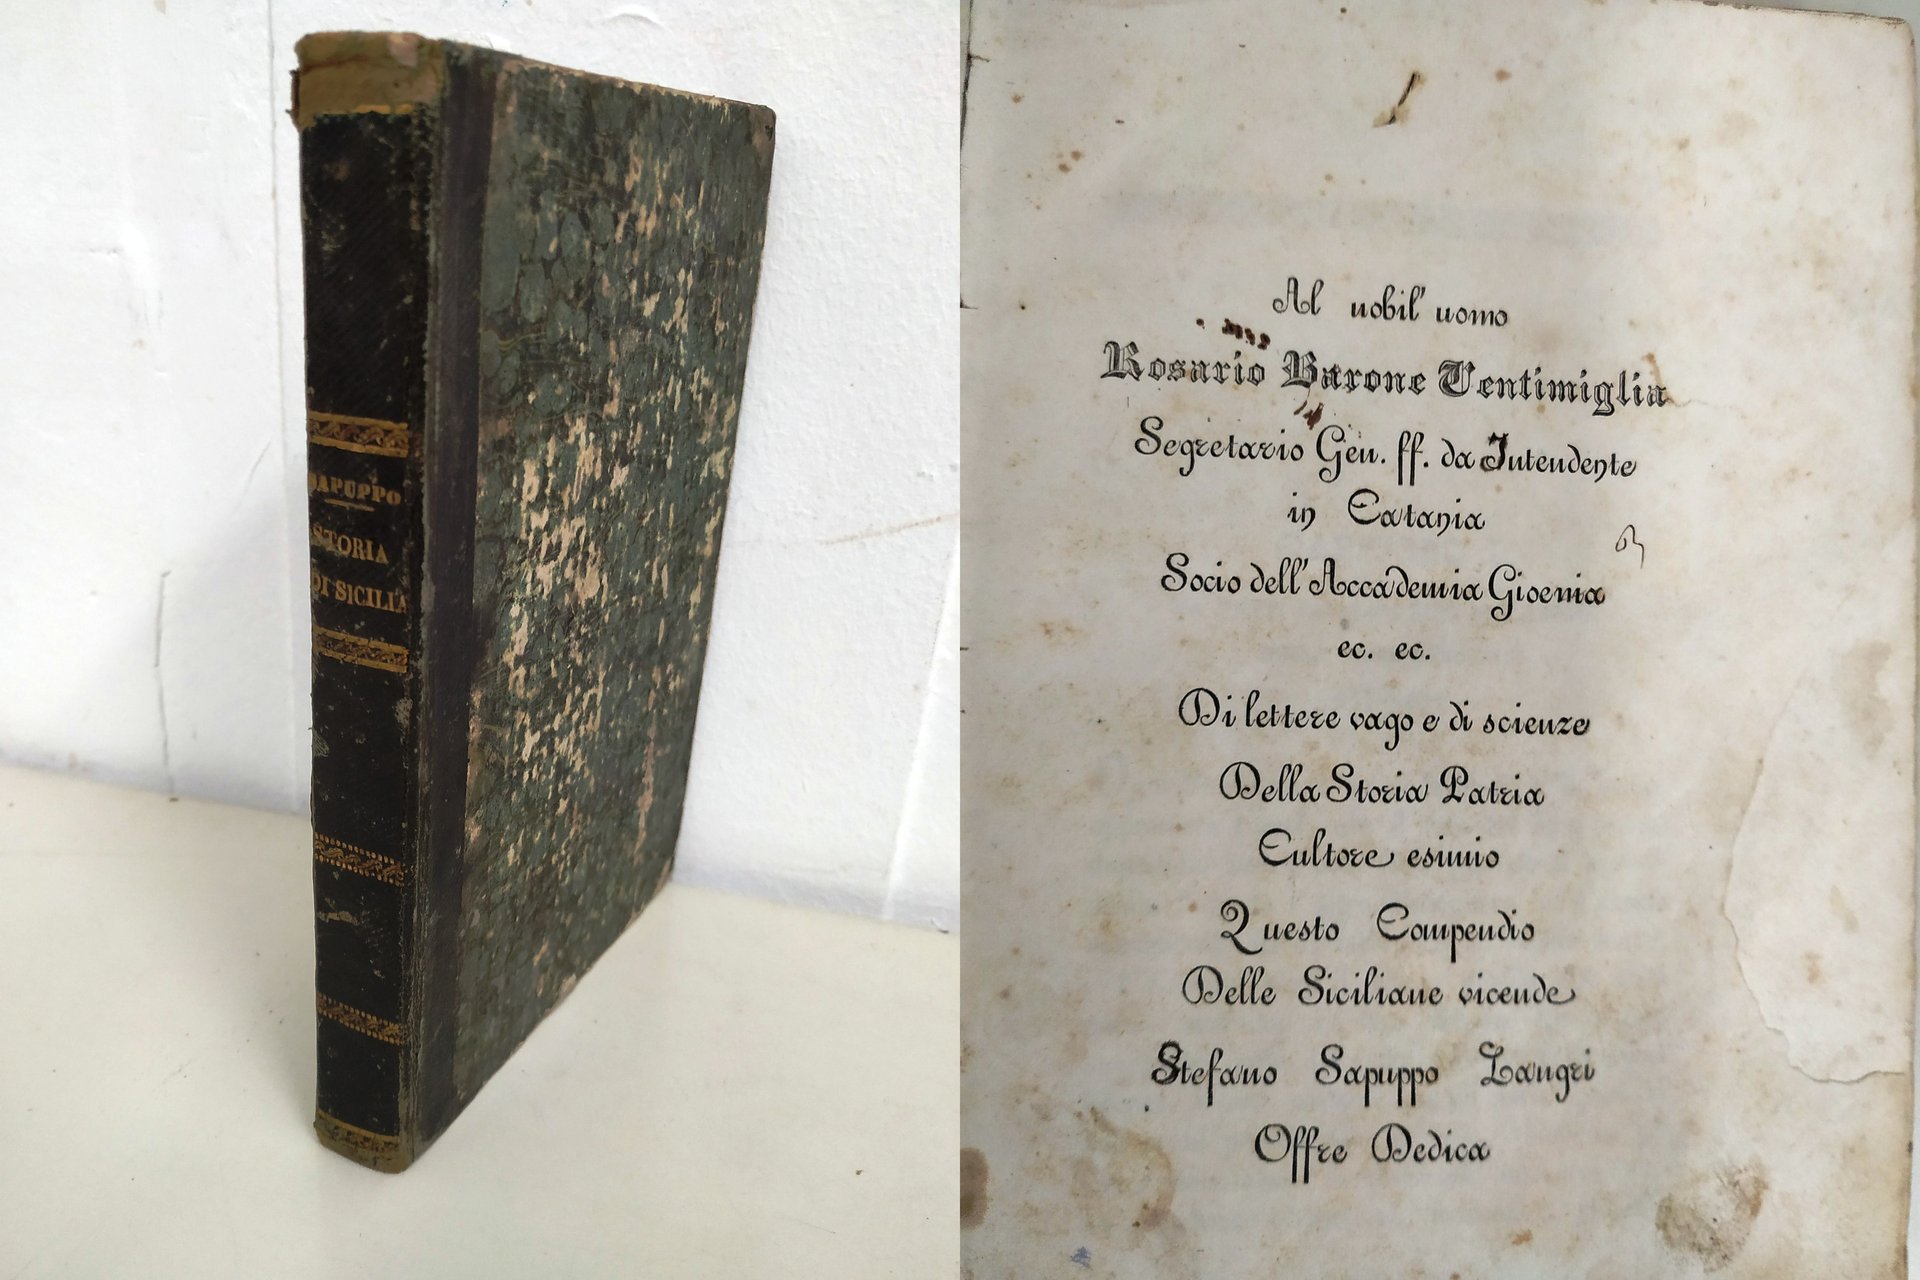 SAPUPPO
STORIA
DI SICILIA
Al nobil' uomo
Rosario Barone Ventimiglia
Segretario Gen. ff. da Intendente
in Catania
Socio dell' Accademia Gioenia
ec. ec.
Di lettere vago e di scienze
Della Storia Patria
Cultore esimio
Questo Compendio
Delle Siciliane vicende
Stefano Sapuppo Zangri
Offre Dedica